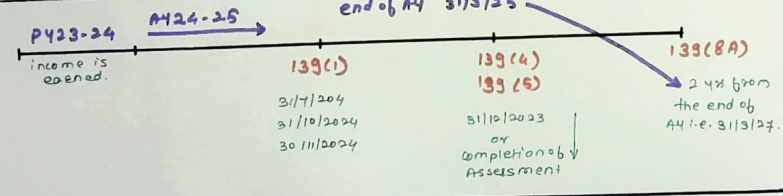 end of AY 31/3/25
PY23-24
AY24-25
income is
earned.
139(1)
31/7/204
31/10/2024
30/11/2024
139(4)
139(5)
31/12/2023
or
completion of
Assessment
139(8A)
2 yrs from
the end of
AY i.e. 31/3/27.